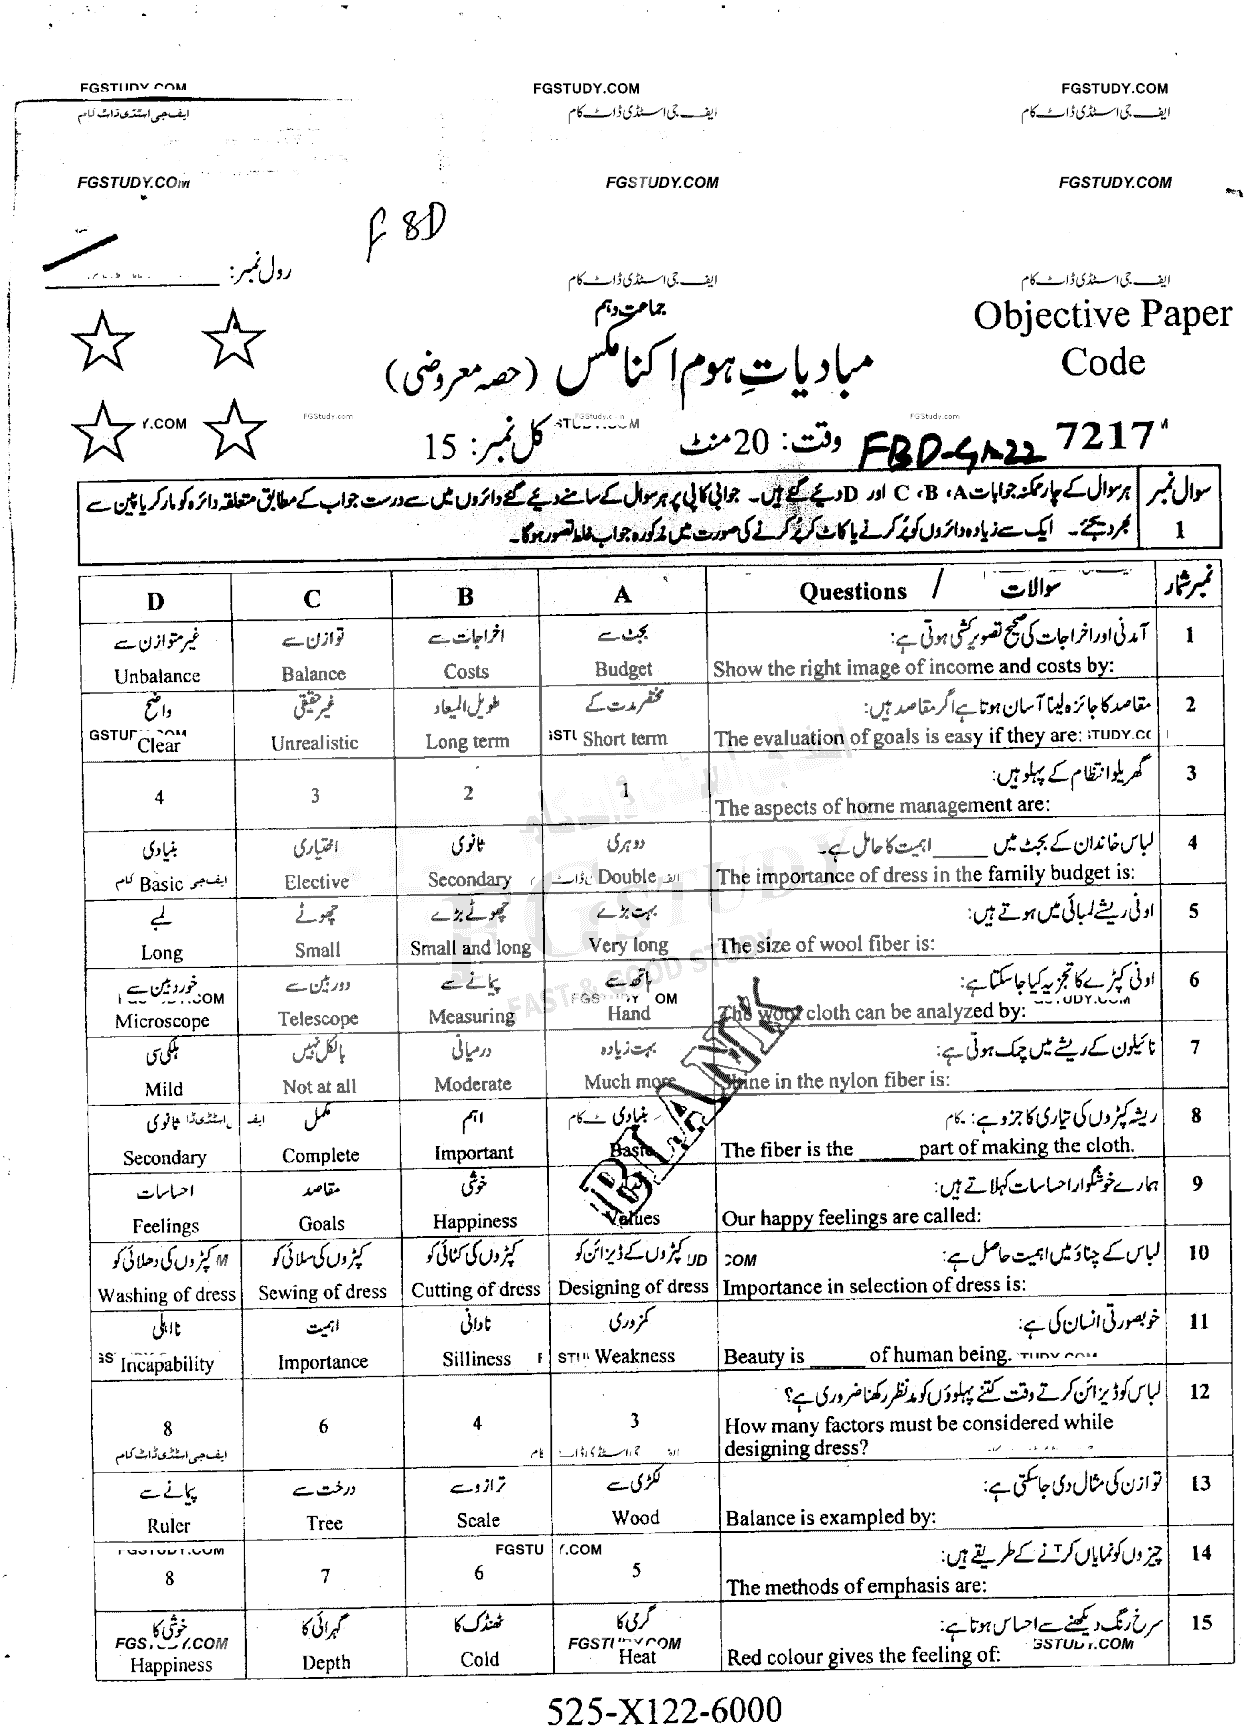 FGSTUDY.COM FGSTUDY.COM FGSTUDY.COM
ایف جی اسٹڈی ڈاٹ کام ایف جی اسٹڈی ڈاٹ کام ایف جی اسٹڈی ڈاٹ کام
FGSTUDY.COM FGSTUDY.COM FGSTUDY.COM
FBD
رول نمبر:
ایف جی اسٹڈی ڈاٹ کام ایف جی اسٹڈی ڈاٹ کام
جماعت دہم
Objective Paper
Code
مبادیاتِ ہوم اکنامکس (حصہ معروضی)
Y.COM FGStudy.com FGStudy.com FGStudy.com
7217 FBD-G1-22 وقت: 20 منٹ کل نمبر: 15
سوال نمبر 1
ہر سوال کے چار ممکنہ جوابات A، B، C اور D دیئے گئے ہیں۔ جوابی کاپی پر ہر سوال کے سامنے دیئے گئے دائروں میں سے درست جواب کے مطابق متعلقہ دائرہ کو مارکر یا پین سے
بھر دیجئے۔ ایک سے زیادہ دائروں کو پُر کرنے یا کاٹ کر پُر کرنے کی صورت میں مذکورہ جواب غلط تصور ہوگا۔
D C B A Questions / سوالات نمبر شمار
غیر متوازن سے توازن سے اخراجات سے بجٹ سے آمدنی اور اخراجات کی صحیح تصویر کشی ہوتی ہے: 1
Unbalance Balance Costs Budget Show the right image of income and costs by:
واضح غیر حقیقی طویل المیعاد مختصر مدت کے مقاصد کا جائزہ لینا آسان ہوتا ہے اگر مقاصد ہیں: 2
Clear Unrealistic Long term Short term The evaluation of goals is easy if they are:
گھریلو انتظام کے پہلو ہیں: 3
4 3 2 1 The aspects of home management are:
بنیادی اختیاری ثانوی دوہری لباس خاندان کے بجٹ میں _____ اہمیت کا حامل ہے۔ 4
Basic Elective Secondary Double The importance of dress in the family budget is:
لمبے چھوٹے چھوٹے بڑے بہت بڑے اونی ریشے لمبائی میں ہوتے ہیں: 5
Long Small Small and long Very long The size of wool fiber is:
خوردبین سے دوربین سے پیمانے سے ہاتھ سے اونی کپڑے کا تجزیہ کیا جا سکتا ہے: 6
Microscope Telescope Measuring Hand The wool cloth can be analyzed by:
ہلکی سی بالکل نہیں درمیانی بہت زیادہ نائیلون کے ریشے میں چمک ہوتی ہے: 7
Mild Not at all Moderate Much more Shine in the nylon fiber is:
ثانوی مکمل اہم بنیادی ریشہ کپڑوں کی تیاری کا جزو ہے: 8
Secondary Complete Important Basic The fiber is the _____ part of making the cloth.
احساسات مقاصد خوشی ہمارے خوشگوار احساسات کہلاتے ہیں: 9
Feelings Goals Happiness Values Our happy feelings are called:
کپڑوں کی دھلائی کو کپڑوں کی سلائی کو کپڑوں کی کٹائی کو کپڑوں کے ڈیزائن کو لباس کے چناؤ میں اہمیت حاصل ہے: 10
Washing of dress Sewing of dress Cutting of dress Designing of dress Importance in selection of dress is:
نااہلی اہمیت نادانی کمزوری خوبصورتی انسان کی ہے: 11
Incapability Importance Silliness Weakness Beauty is _____ of human being.
لباس کو ڈیزائن کرتے وقت کتنے پہلوؤں کو مدنظر رکھنا ضروری ہے؟ 12
8 6 4 3 How many factors must be considered while
designing dress?
ایف جی اسٹڈی ڈاٹ کام
پیمانے سے درخت سے ترازو سے لکڑی سے توازن کی مثال دی جا سکتی ہے: 13
Ruler Tree Scale Wood Balance is exampled by:
چیزوں کو نمایاں کرنے کے طریقے ہیں: 14
8 7 6 5 The methods of emphasis are:
خوشی کا گہرائی کا ٹھنڈک کا گرمی کا سرخ رنگ دیکھنے سے احساس ہوتا ہے: 15
Happiness Depth Cold Heat Red colour gives the feeling of:
BLANK
FGSTUDY
FAST & GOOD STUDY
525-X122-6000